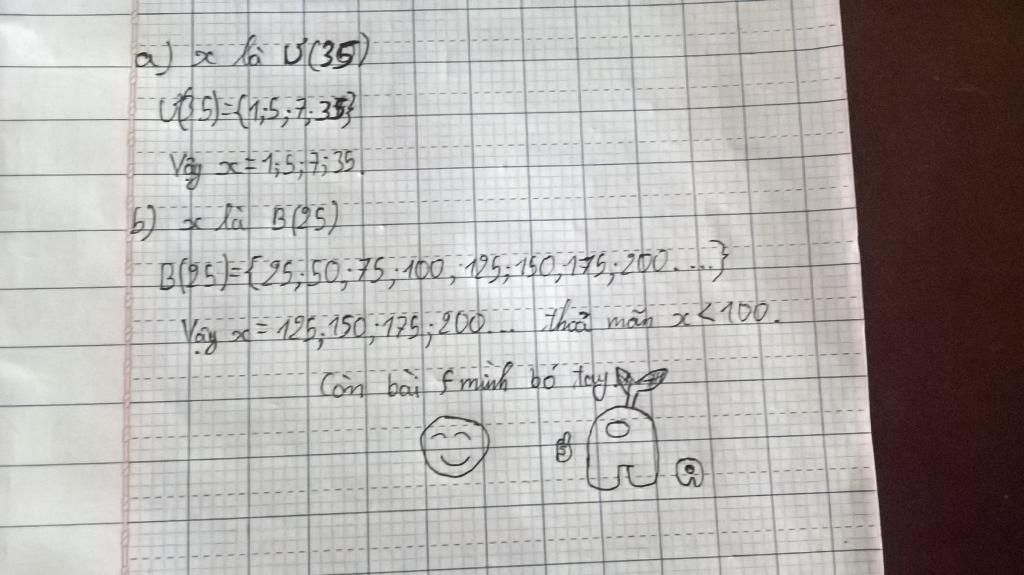 a) x là Ư(35)
Ư(35)={1;5;7;35}
Vậy x=1;5;7;35.
b) x là B(25)
B(25)={25;50;75;100;125;150;175;200....}
Vậy x=125;150;175;200... thoả mãn x<100.
Còn bài f mình bó tay